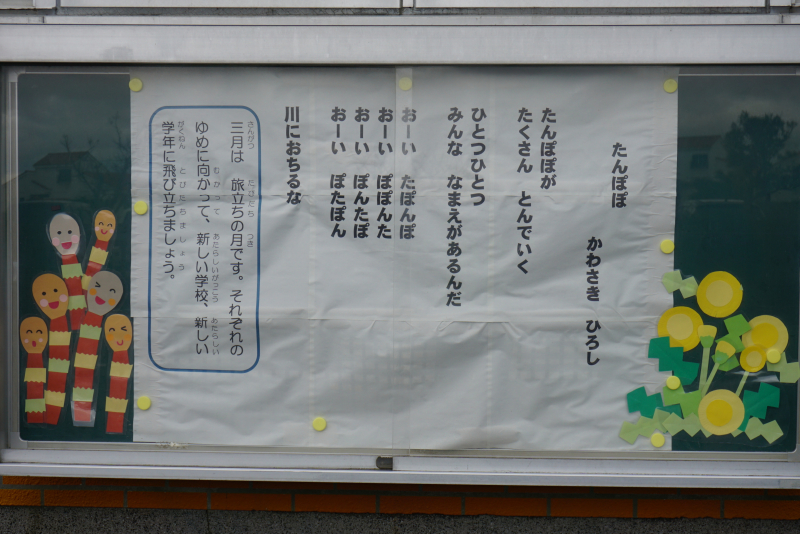 たんぽぽ
かわさき ひろし
たんぽぽが
たくさん とんでいく
ひとつひとつ
みんな なまえがあるんだ
おーい たぽんぽ
おーい ぽぽんた
おーい ぽんたぽ
おーい ぽたぽん
川におちるな
三月は 旅立ちの月です。それぞれの
ゆめに向かって、新しい学校、新しい
学年に飛び立ちましょう。